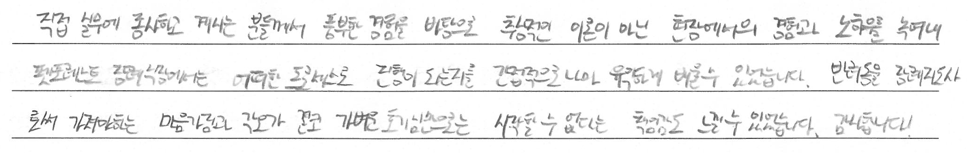 직접 실무에 종사하고 계시는 분들께서 풍부한 경험을 바탕으로 추상적인 이론이 아닌 현장에서의 경험과 노하우를 녹여내
펫포레스트 장례식장에서는 어떠한 프로세스로 진행이 되는지를 간접적으로나마 유익하게 배울 수 있었습니다. 반려동물 장례지도사
로써 가져야하는 마음가짐과 각오가 결코 가벼운 호기심만으로는 시작할 수 없다는 책임감도 느낄 수 있었습니다. 감사합니다!